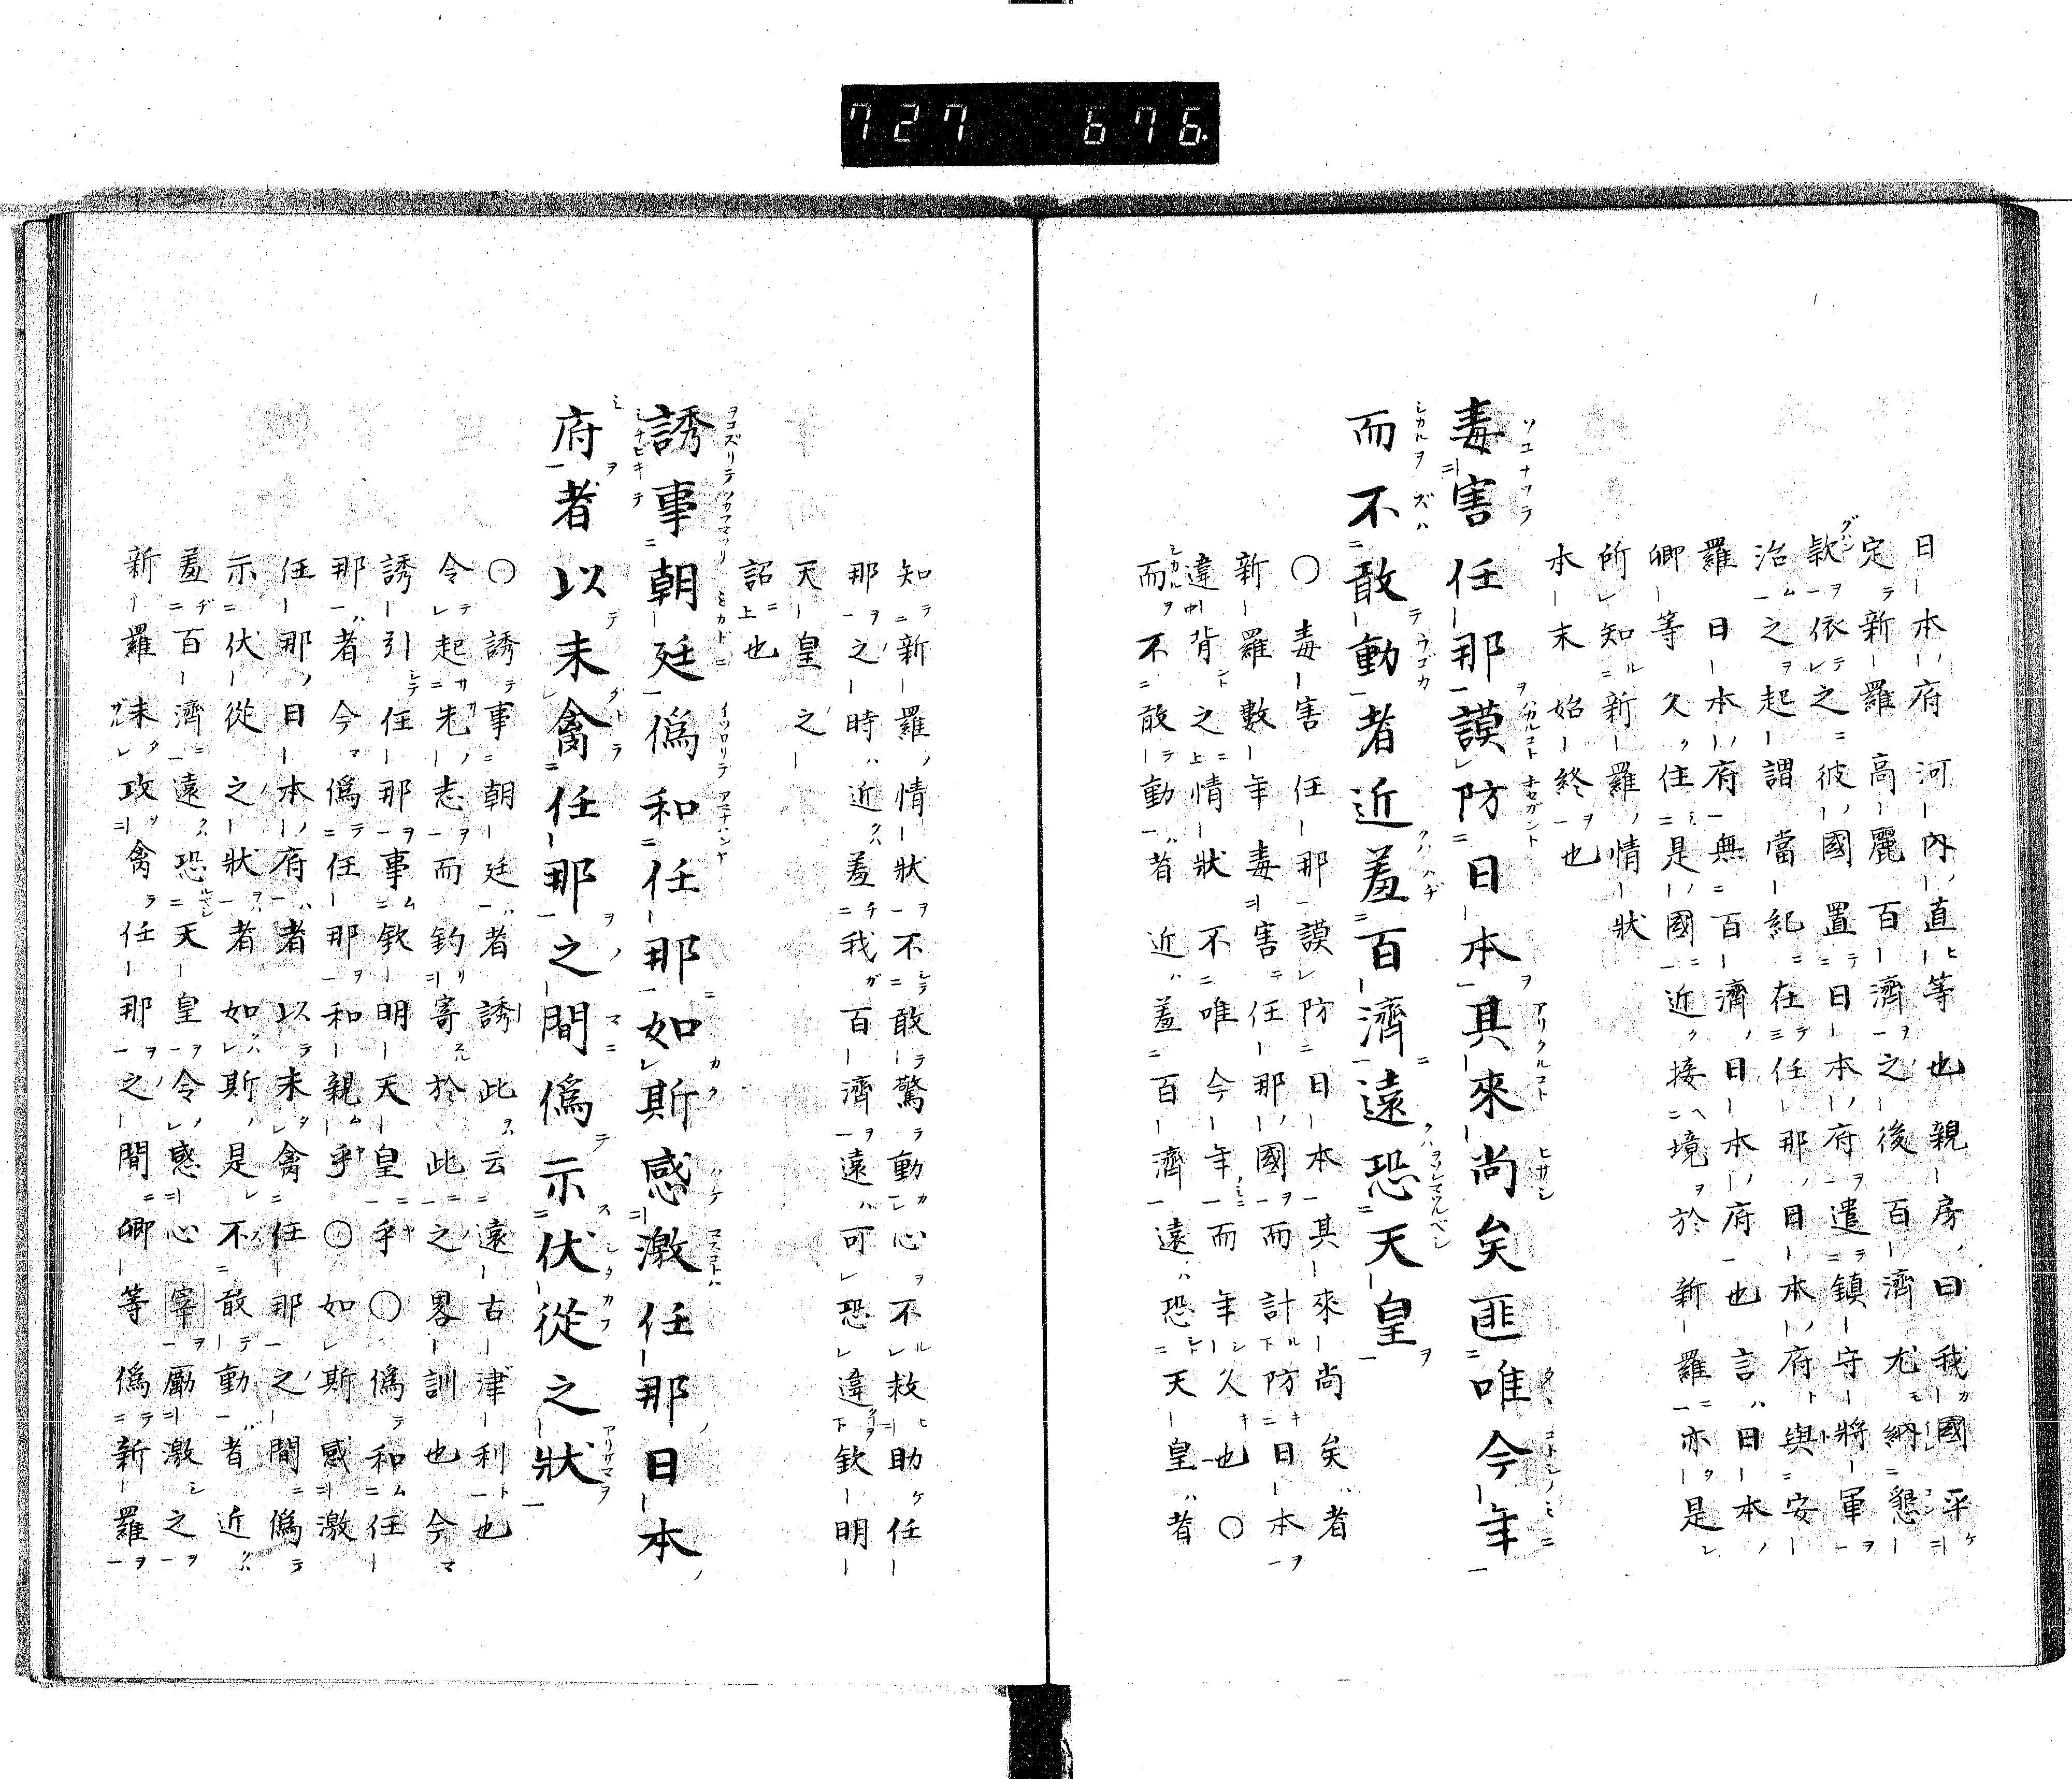 727 676
日本府河內直等也親房曰我國平
定新羅高麗百濟之後百濟尤納懇
款依之彼國置日本府遣鎮守將軍
治之起謂當紀在任那日本府與安
羅日本府無百濟日本府也言日本
卿等久住是國近接境於新羅亦是
所知新羅情狀
本末始終也
毒害任那謨防日本其來尚矣匪唯今年
而不敢動者近羞百濟遠恐天皇
〇毒害任那謨防日本其來尚矣者
新羅數年毒害任那國而計防日本
違背之情狀不唯今年而年久也〇
而不敢動者近羞百濟遠恐天皇者
知新羅情狀不敢驚動心不救助任
那之時近羞我百濟遠可恐違欽明
天皇之
詔也
誘事朝廷僞和任那如斯感激任那日本
府者以未禽任那之間僞示伏從之狀
〇誘事朝廷者誘此云遠古津利也
令起先志而釣寄於此之畧訓也今
誘引任那事欽明天皇乎〇僞和任
那者今僞任那和親乎〇如斯感激
任那日本府者以未禽任那之間僞
示伏從之狀者如斯是不敢動者近
羞百濟遠恐天皇令感心寧勵激之
新羅未攻禽任那之間卿等僞新羅